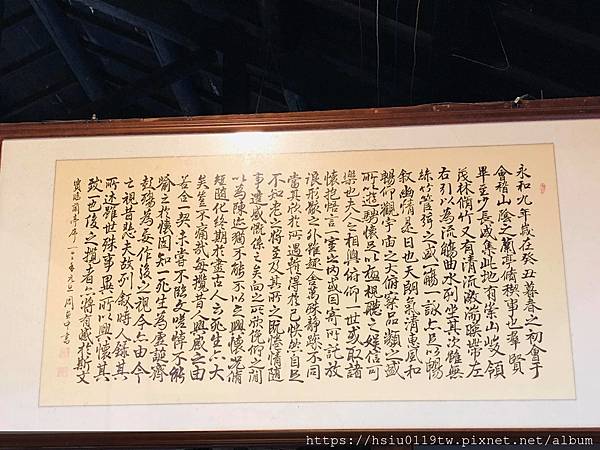 永和九年歲在癸丑暮春之初會于
會稽山陰之蘭亭脩稧事也羣賢
畢至少長咸集此地有崇山峻領
茂林脩竹又有清流激湍暎帶左
右引以為流觴曲水列坐其次雖無
絲竹管弦之盛一觴一詠亦足以暢
叙幽情是日也天朗氣清惠風和
暢仰觀宇宙之大俯察品類之盛
所以遊目騁懷足以極視聽之娛信可
樂也夫人之相與俯仰一世或取諸
懷抱悟言一室之內或因寄所託放
浪形骸之外雖趣舍萬殊靜躁不同
當其欣於所遇暫得於己怏然自足
不知老之將至及其所之既惓情隨
事遷感慨係之矣向之所欣俛仰之閒
以為陳迹猶不能不以之興懷況脩
短隨化終期於盡古人云死生亦大
矣豈不痛哉每攬昔人興感之由
若合一契未嘗不臨文嗟悼不能
喻之於懷固知一死生為虛誕齊
彭殤為妄作後之視今亦由今
之視昔悲夫故列敘時人錄其
所述雖世殊事異所以興懷其
致一也後之攬者亦將有感於斯文
臨蘭亭序
https://hsiu0119tw.pixnet.net/album